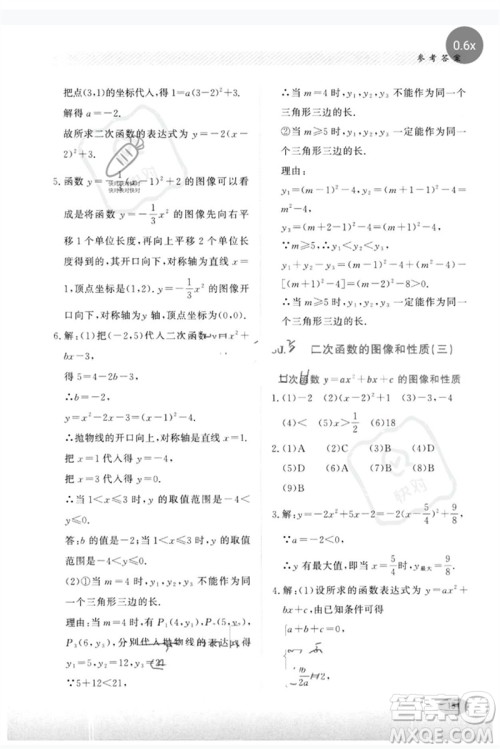 0.6x
参考答案
把点(3,1)的坐标代入,得1=a(3-2)²+3.
解得a=-2.
故所求二次函数的表达式为y=-2(x-2)²+3.
5.函数y=-(-1)²+2的图像可以看
成是将函数y=-\frac{1}{3}x²的图像先向右平移
1个单位长度,再向上平移2个单位长
度得到的,其开口向下,对称轴为直线x=
1,顶点坐标是(1,2).函数y=-\frac{1}{3}x²的图
像开口向下,对称轴为y轴,顶点坐标为(0,0).
6.解:(1)把(-2,5)代入二次函数y=x²+
bx-3,
得5=4-2b-3.
∴b=-2.
∴y=x²-2x-3=(x-1)²-4.
∴抛物线的开口向上,对称轴为直线x=1.
把x=1代入得y=-4.
把x=3代入得y=0.
∴当1<x≤3时,y的取值范围是-4<
y≤0.
答:b的值是-2;当1<x≤3时,y的取
值范围是-4<y≤0.
(2)①当m=4时,y₁,y₂,y₃不能作为同
一个三角形三边的长.
理由:当m=4时,有P₁(4,y₁),P₂(5,y₂),
P₃(6,y₃),分别代入抛物线的表达式得
y₁=5,y₂=12,y₃=21
∵5+12<21,
∴当m=4时,y₁,y₂,y₃不能作为同一个
三角形三边的长.
②当m≥5时,y₁,y₂,y₃一定能作为同一
个三角形三边的长.
理由:
y₁=(m-1)²-4,
y₂=m²-4,
y₃=(m+1)²-4.
∵m≥5,∴y₁<y₂<y₃.
y₁+y₂-y₃=[(m-1)²-4]+(m²-4)-
[(m+1)²-4]=(m-2)²-8>0,
∴y₁+y₂>y₃.
∴当m≥5时,y₁,y₂,y₃一定能作为同一个
三角形三边的长.
二次函数的图像和性质(三)
二次函数y=ax²+bx+c的图像和性质
1.(1)-2 (2)x=1 (3)(3,-4)
(4)< (5)x>\frac{1}{2} (6)18
2.(1)A (2)D (3)C (4)B
(5)D (6)A (7)C (8)D
(9)B
3.解:y=-2x²+5x-2=-2(x-\frac{5}{4})²+\frac{9}{8}.
∵a=-2<0,
∴y有最大值,当x=\frac{5}{4}时,y最大=\frac{9}{8}.
4.解:(1)设所求的函数表达式为y=ax²+
bx+c,由题意得
a+b+c=0,
=2,
作业帮